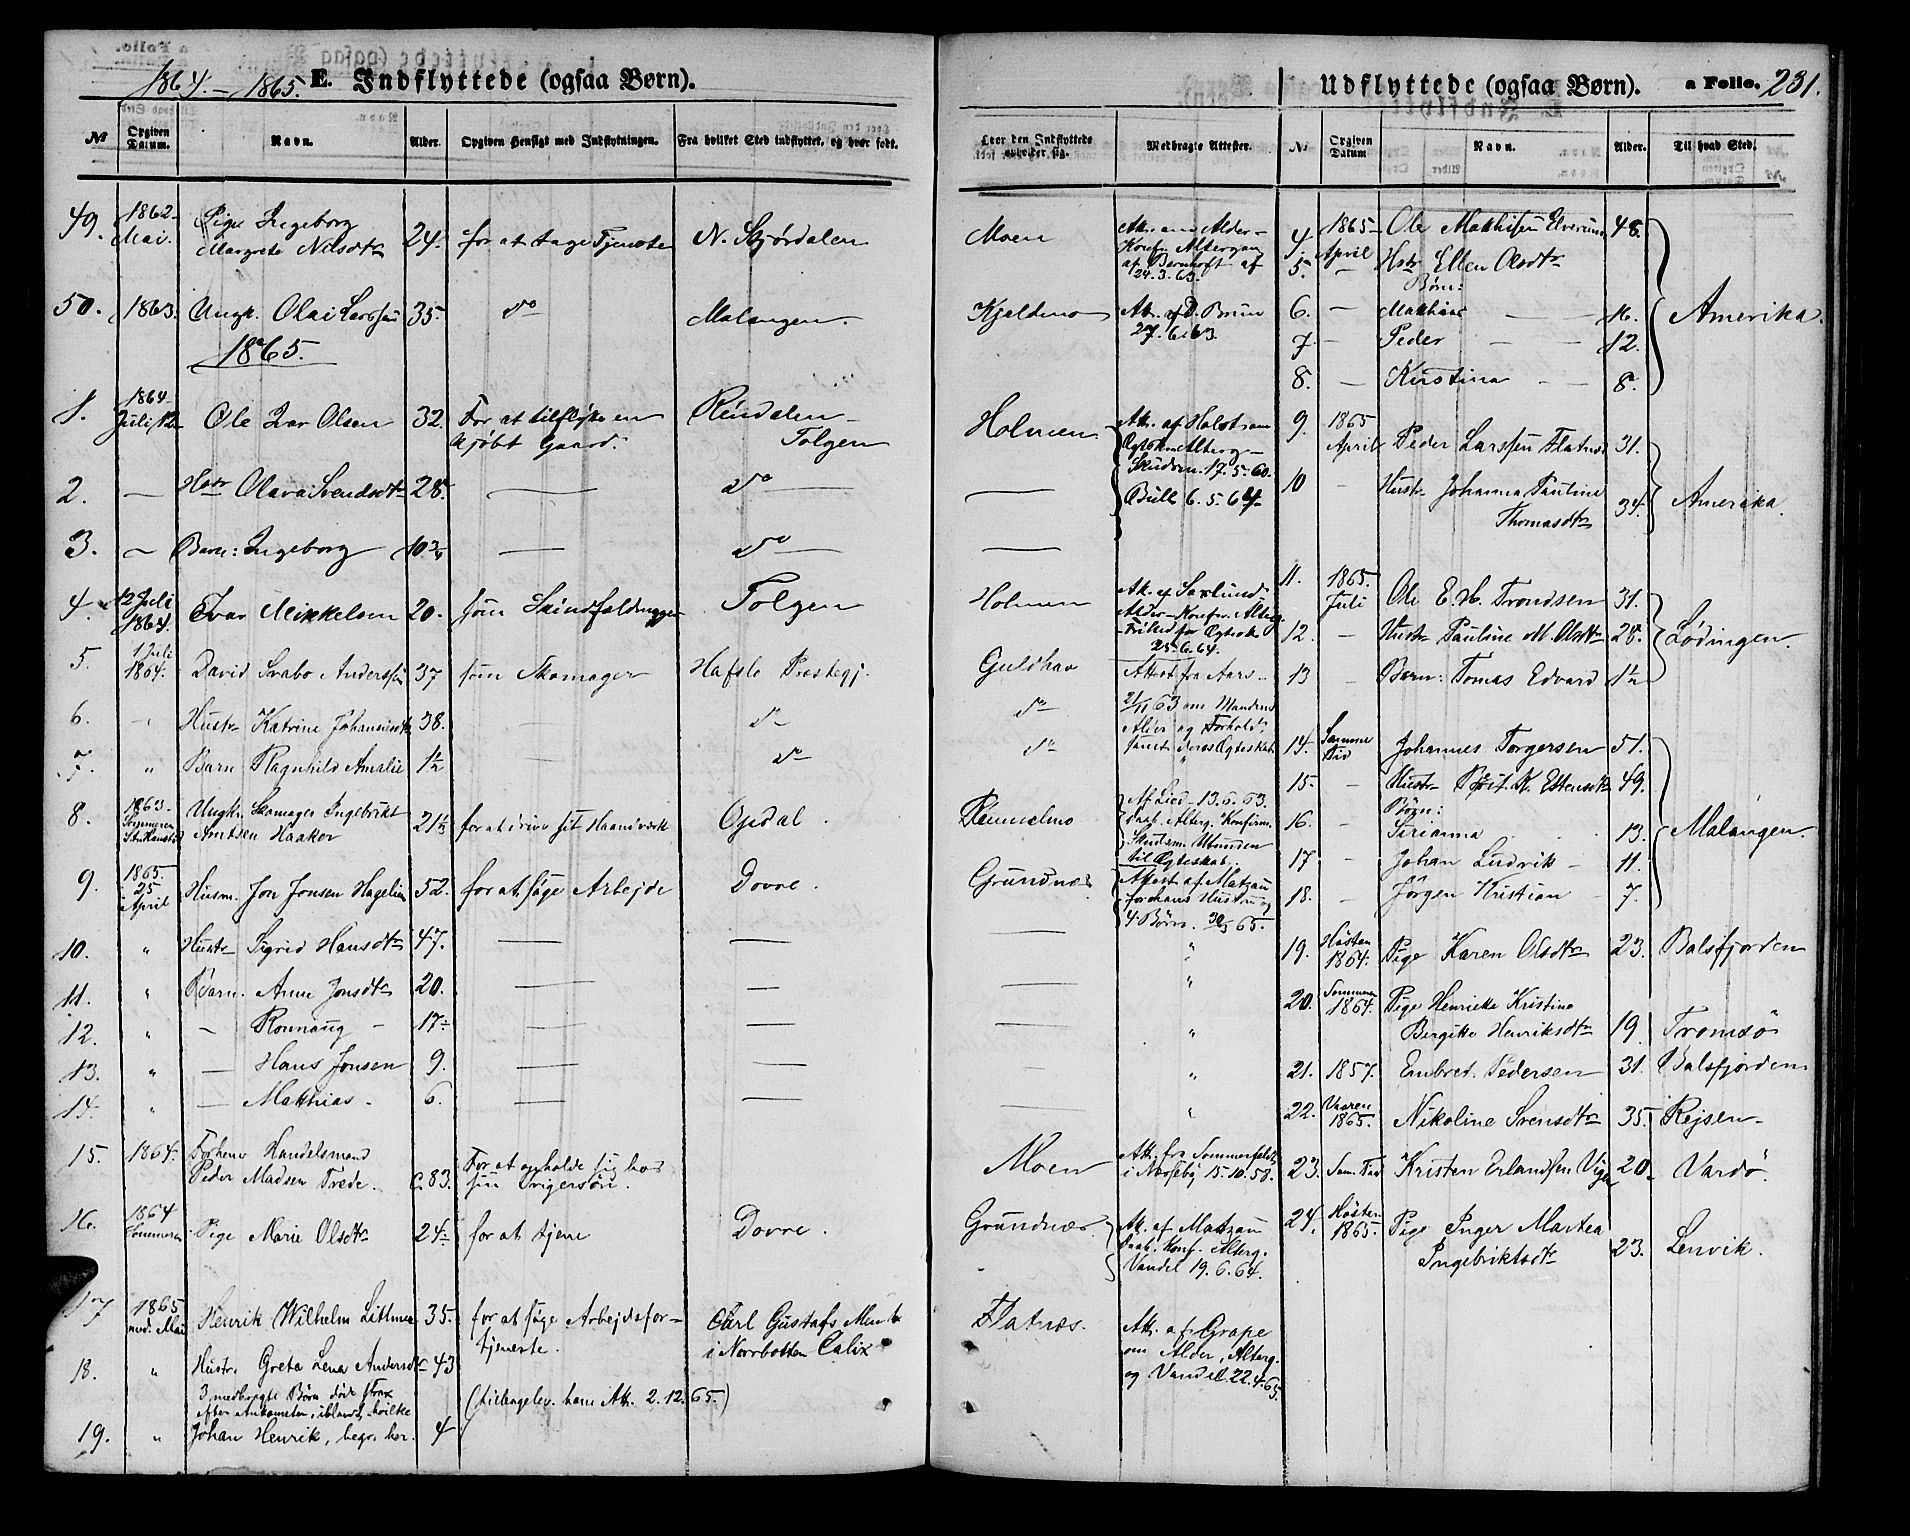 1864. - 1865. E. Indflyttede (ogsaa Børn).
No
Opgiven Datum.
Navn.
Alder.
Opgiven Hensigt med Indflytningen.
Fra hvilket Sted indflyttet, og hvor født.
49. 1862 Mai. Pige Ingeborg
Margrete Nilsdtr 24. for at tage Tjeneste N. Stjørdalen
50. 1863. Ungk. Olai Larssen 35. do Malangen.
1865.
1. 1864 Juli 12 Ole Ivar Olsen 32. For at tilflytte en Rendalen
kjøbt Gaard. Tolgen
2. — Hstr Olava Svendsdtr 28. — do —
3. — Barn: Ingeborg 10 3/4 — do —
4. 12 Juli 1864. Ivar Mikkelsen 20. som Skindfeldmager Tolgen
5. 1 Juli 1864. David Srabo Anderssen 37 som Skomager Hafslo Præstegj.
6. " Hustr Katrine Johannesdtr 38. — do
7. " Barn Ragnhild Amalie 1½ — do
8. 1863 Sommeren St. Hanstid Ungk. Skomager Ingebrikt
Arntsen Haaker 21½ for at drive sit Haandværk Opdal.
9. 1865. 25 April Husm. Jon Jonsen Hagelien 52. for at søge Arbejde Dovre.
10. " Hustr Sigrid Hansdtr 47. — —
11. " Barn. Anne Jonsdtr 20. — —
12. " — Ronnaug — 17. — —
13. " — Hans Jonsen 9. — —
14. " — Matthias. 6. — —
15. 1864. Forhenv Handelsmand
Peder Madsen Trede. c. 83. For at opholde sig hos
sin Svigersøn.
16. 1864 Sommeren Pige Marie Olsdtr 24. for at tjene Dovre.
17 1865 med. Mai Henrik Wilhelm Littman 35. for at søge Arbejdsfor- Carl Gustafs Menh.
tjeneste. i Norrbotten Calix
18. " Hustr. Greta Lena Andersdtr 43
3 medbragte Børn døde strax (tilbagelev. ham Att. 2.12.65.)
efter Ankomsten, iblandt hvilke
19. " Johan Henrik, begr. her. 4
Udflyttede (ogsaa Børn). a Folio. 231.
Hvor den Indflyttede opholder sig.
Medbragte Attester.
No
Opgiven Datum
Navn.
Alder.
Til hvad Sted.
Moen
Att. om Alder-
Konf. Altergang
af Bernhoft af
24.3.63.
Kjeldmo
Att. af D. Bruun
27.6.63.
Holmen
Att. af Holst om
Ægtsk. Alterg.
Skudsm. 17.5.60.
Bull 6.5.64
—
—
Holmen
Att. af Saxlund
Alder-Konf. Alterg.
Frihed for Ægtesk.
25.6.64.
Guldhav
Attest fra Aars-
do
2/11 63 om Mandens
Alder og Forhold,
do
samt deres Ægteskab.
Rennelmo
Af Lied 13.6.63.
Daab. Alterg. Konfirm.
Skudsm. Ubunden
til Ægteskab.
Grundnæs
Attest af Matzau
for hans Hustru og
4 Børn. 30/3 65.
— "
— "
— "
— "
— "
Moen
Att. fra Sommerfeldt
i Næsseby 15.10.58.
Grundnæs.
Att. af Matzau
Daab. Konf. Alterg.
Vandel 19.6.64.
Flatnæs.
Att. af Grape
om Alder, Alterg.
og Vandel 22.4.65.
4 1865 April Ole Matthisen Elverum 48.
5. — Hstr Ellen Olsdtr
Børn:
6. — Matthias — 16. Amerika.
7 — Peder — 12.
8. — Kristina — 8.
9. 1865 April Peder Larssen Flatnæs 31.
10 — Hustr Johanna Pauline
Thomasdtr 34. Amerika.
11. 1865. Juli Ole E. H. Trondsen 31.
12. — Hustr Pauline M. Olsdtr 28. Lødingen.
13 — Barn: Tomas Edvard 1½
14. Samme Tid Johannes Torgersen 51.
15. — Hustr Berit K. Estensdtr 49.
Børn:
16. — Sirianna 13. Malangen
17 — Johan Ludvik — 11.
18. — Jørgen Kristian — 7.
19. Høsten 1864. Pige Karen Olsdtr 23. Balsfjorden
20. Sommeren 1864. Pige Henrikke Kristina
Bergitte Henriksdtr 19. Tromsø
21. 1857. Embret Pedersen 31. Balsfjorden
22. Vaaren 1865. Nikoline Svensdtr 35. Rejsen
23. Sam. Tid Kristen Erlandsen Vigen 20. Vardø.
24. Høsten 1865. Pige Inger Martea
Ingebriktsdtr 23. Lenvik.